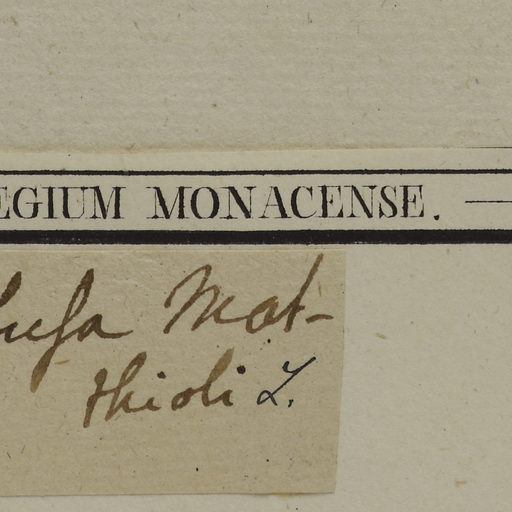 EGIUM MONACENSE. —
usa Mat-
thioli L.